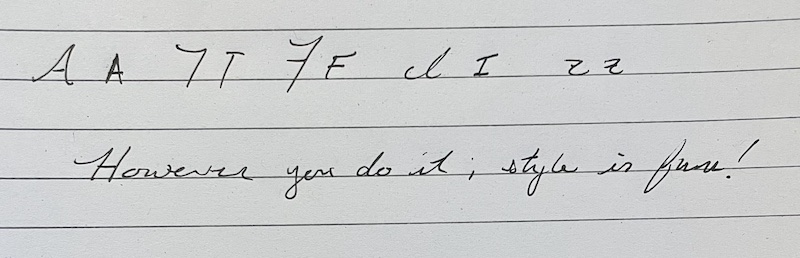 A A T T F F I I z z
However you do it; style is fun!